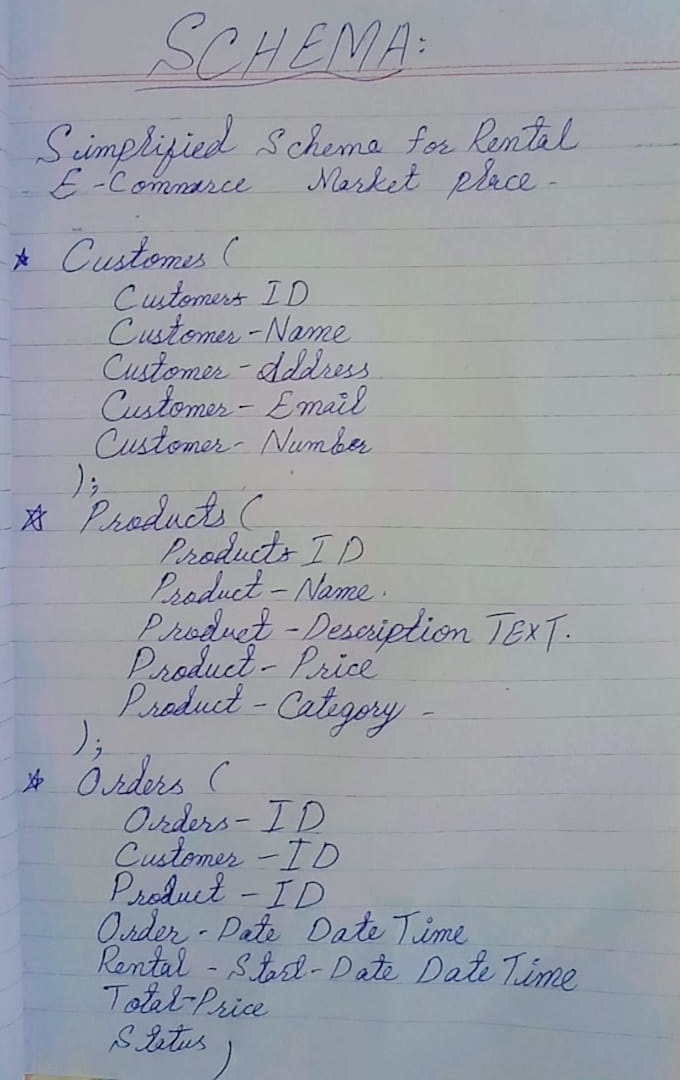 SCHEMA:
Simplified Schema for Rental
E-Commerce Market place -
☆ Customes (
Customers ID
Customer-Name
Customer-Address
Customer-Email
Customer-Number
);
☆ Products (
Products ID
Product-Name.
Product-Description TEXT.
Product-Price
Product-Category -
);
☆ Orders (
Orders-ID
Customer-ID
Product-ID
Order-Date Date Time
Rental-Start-Date Date Time
Total-Price
Status )